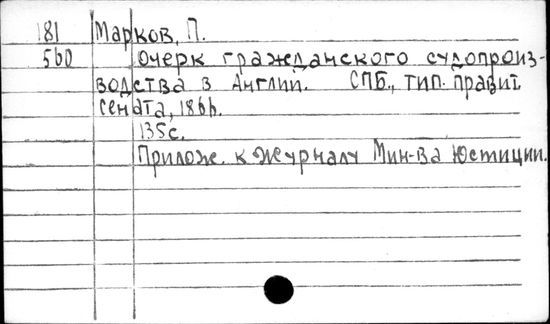 181 Марков, П.
560 Очерк гражданского судопроиз-
водства в Англии. СПБ., тип. правит
сената, 1866.
135с.
Прилож. к Журналу Мин-ва Юстиции.